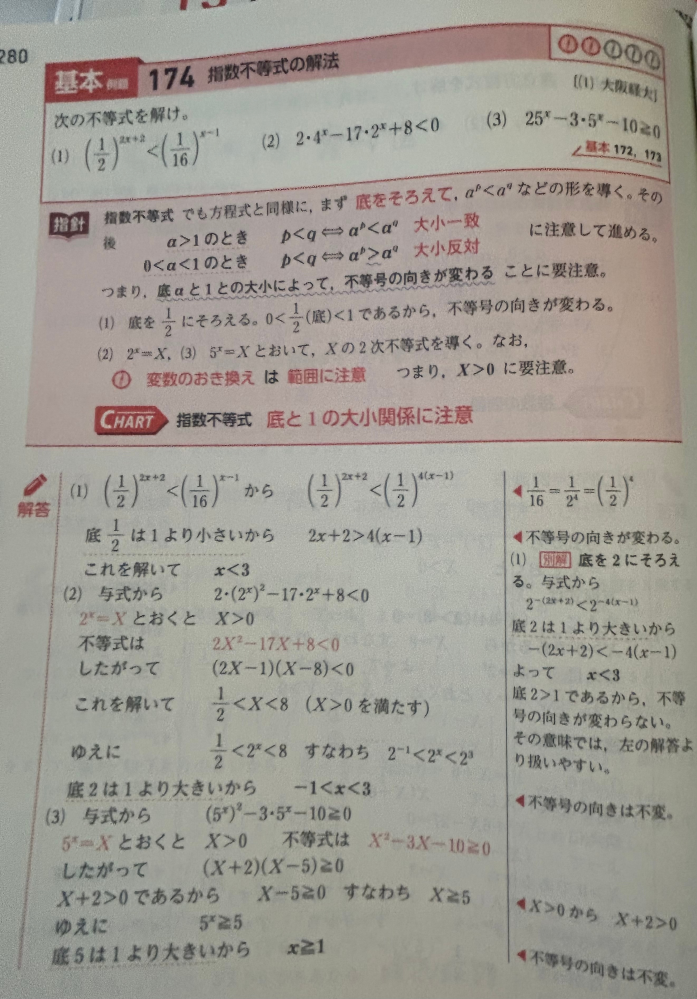 280
基本 例題 174 指数不等式の解法
[(1) 大阪経大]
次の不等式を解け。
(1) (1/2)^(2x+2)<(1/16)^(x-1) (2) 2・4^x-17・2^x+8<0 (3) 25^x-3・5^x-10≧0
基本 172, 173
指針 指数不等式 でも方程式と同様に, まず 底をそろえて, a^p<a^q などの形を導く。その
後 a>1 のとき p<q⇔a^p<a^q 大小一致
0<a<1 のとき p<q⇔a^p>a^q 大小反対 に注意して進める。
つまり, 底 a と 1 との大小によって, 不等号の向きが変わる ことに要注意。
(1) 底を 1/2 にそろえる。0<1/2(底)<1 であるから, 不等号の向きが変わる。
(2) 2^x=X, (3) 5^x=X とおいて, X の 2 次不等式を導く。なお,
変数のおき換え は 範囲に注意 つまり, X>0 に要注意。
CHART 指数不等式 底と 1 の大小関係に注意
解答
(1) (1/2)^(2x+2)<(1/16)^(x-1) から (1/2)^(2x+2)<(1/2)^(4(x-1))
底 1/2 は 1 より小さいから 2x+2>4(x-1)
これを解いて x<3
(2) 与式から 2・(2^x)^2-17・2^x+8<0
2^x=X とおくと X>0
不等式は 2X^2-17X+8<0
したがって (2X-1)(X-8)<0
これを解いて 1/2<X<8 (X>0 を満たす)
ゆえに 1/2<2^x<8 すなわち 2^(-1)<2^x<2^3
底 2 は 1 より大きいから -1<x<3
(3) 与式から (5^x)^2-3・5^x-10≧0
5^x=X とおくと X>0 不等式は X^2-3X-10≧0
したがって (X+2)(X-5)≧0
X+2>0 であるから X-5≧0 すなわち X≧5
ゆえに 5^x≧5
底 5 は 1 より大きいから x≧1
◀1/16=1/2^4=(1/2)^4
◀不等号の向きが変わる。
(1) 別解 底を 2 にそろえ
る。与式から
2^(-(2x+2))<2^(-4(x-1))
底 2 は 1 より大きいから
-(2x+2)<-4(x-1)
よって x<3
底 2>1 であるから, 不等
号の向きが変わらない。
その意味では, 左の解答よ
り扱いやすい。
◀不等号の向きは不変。
◀X>0 から X+2>0
◀不等号の向きは不変。